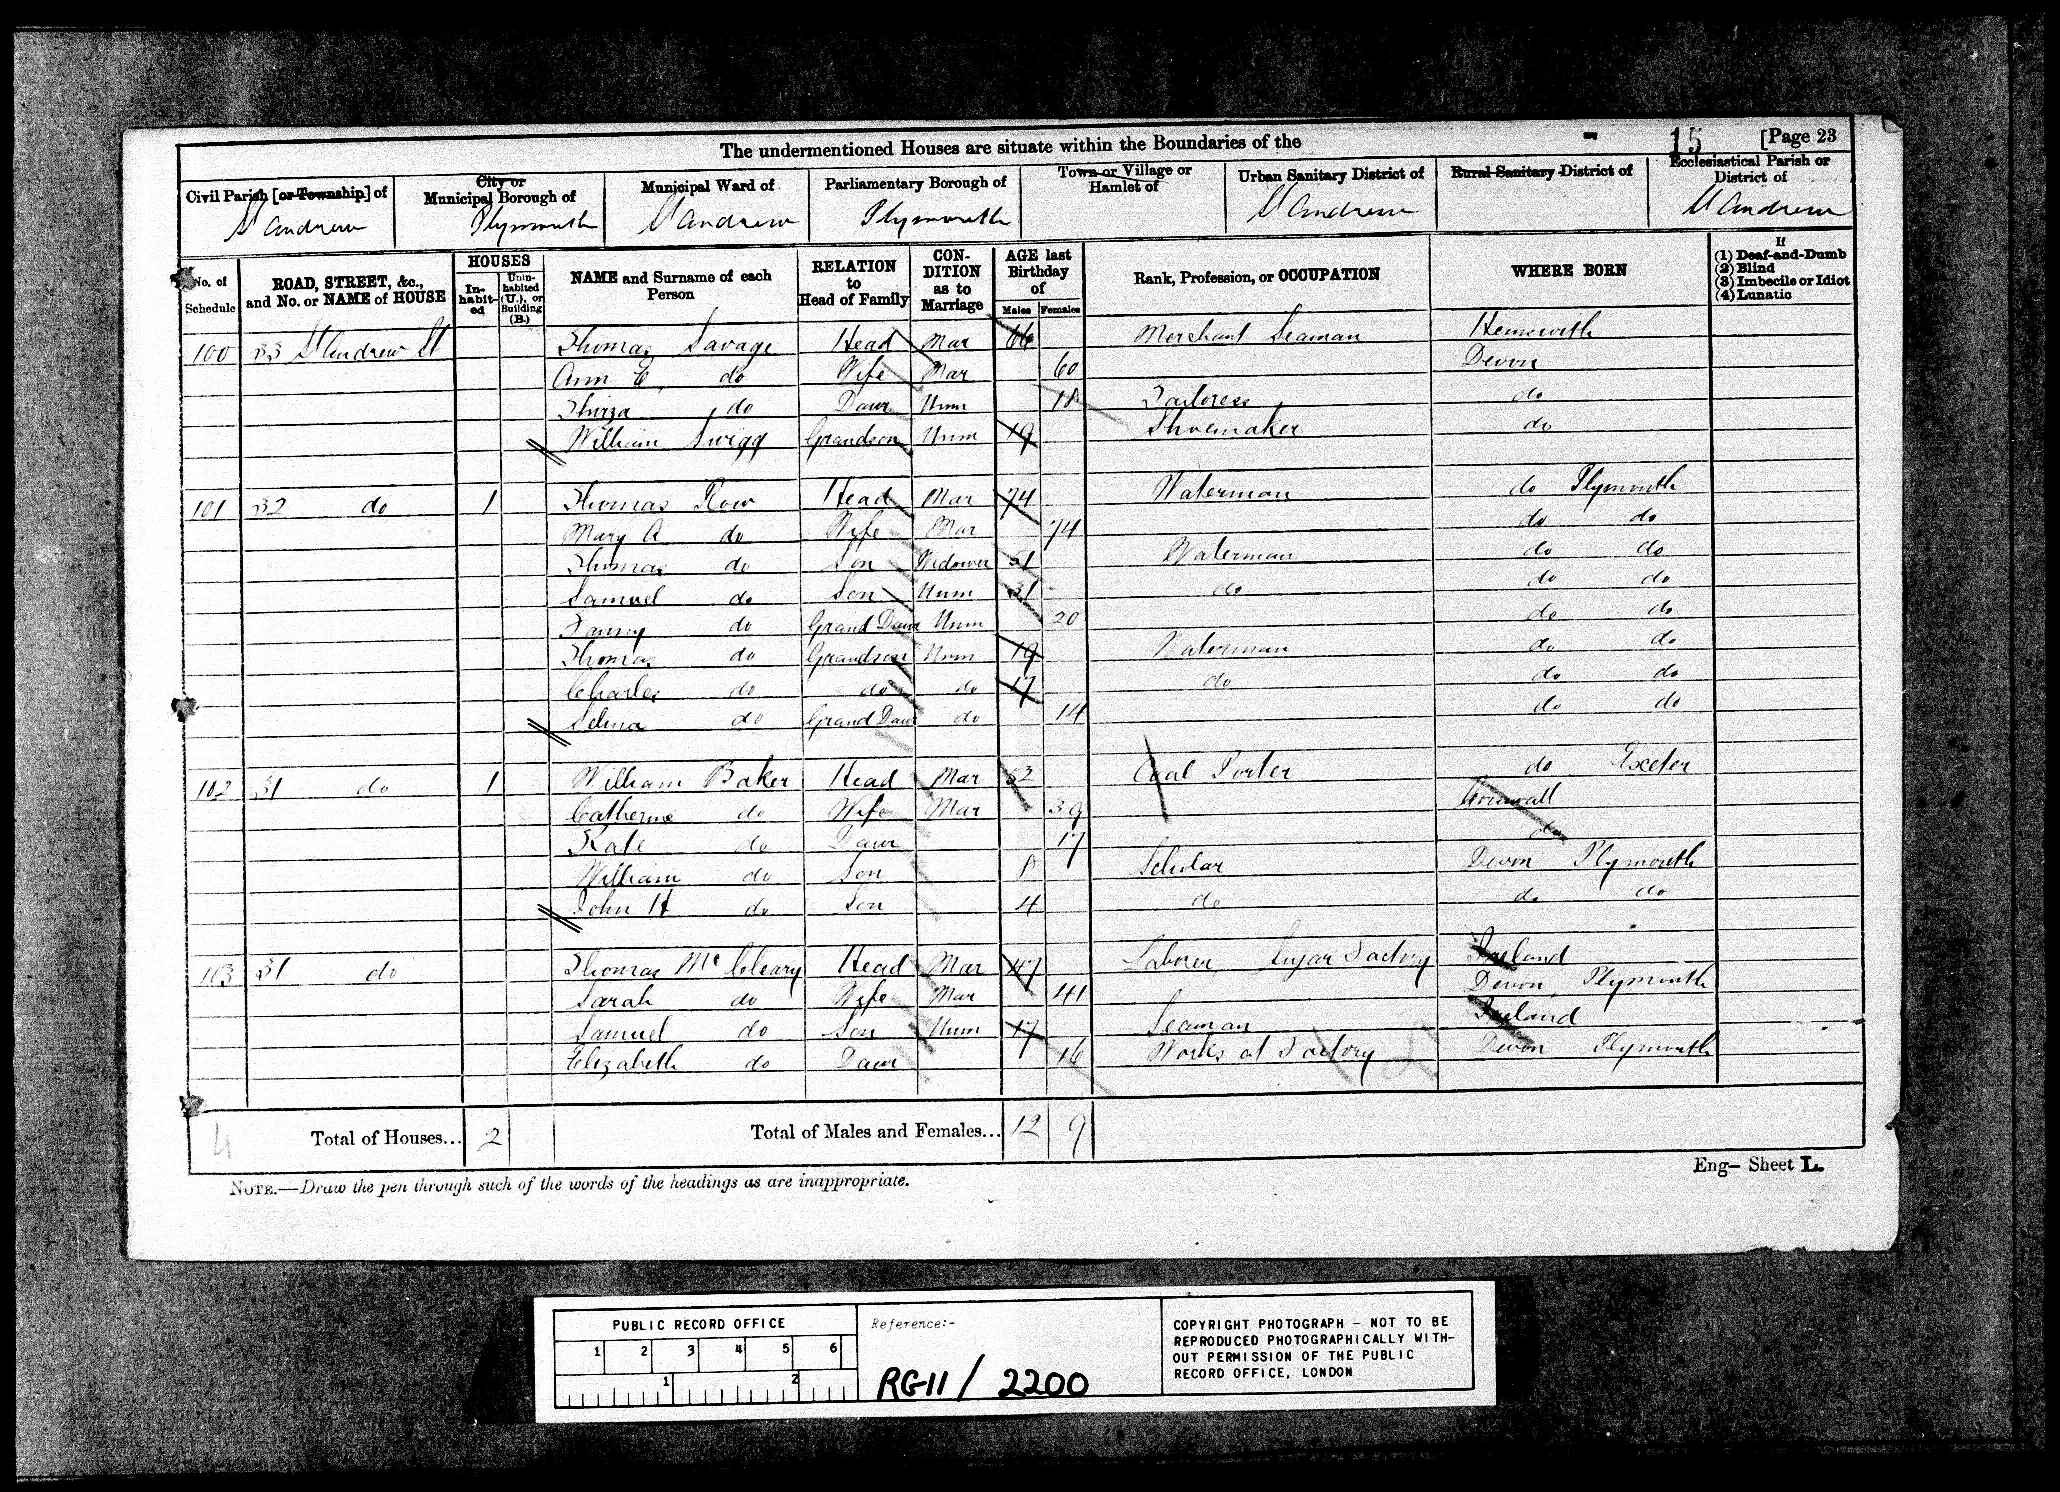 The undermentioned Houses are situate within the Boundaries of the 15 [Page 23
Civil Parish [or Township] of City or Municipal Borough of Municipal Ward of Parliamentary Borough of Town or Village or Hamlet of Urban Sanitary District of Rural Sanitary District of Ecclesiastical Parish or District of
St Andrew Plymouth St Andrew Plymouth St Andrew St Andrew
No. of Schedule ROAD, STREET, &c., and No. or NAME of HOUSE HOUSES In-habit-ed Unin-habited (U.), or Building (B.) NAME and Surname of each Person RELATION to Head of Family CON-DITION as to Marriage AGE last Birthday of Males Females Rank, Profession, or OCCUPATION WHERE BORN If (1) Deaf-and-Dumb (2) Blind (3) Imbecile or Idiot (4) Lunatic
100 33 St Andrew St Thomas Savage Head Mar 66 Merchant Seaman
Ann E do Wife Mar 60 Devon
Thirza do Daur Unm 18 Tailoress do
William Twigg Grandson Unm 19 Shoemaker do
101 32 do 1 Thomas Row Head Mar 74 Waterman do Plymouth
Mary A do Wife Mar 74 do do
Thomas do Son Widower 51 Waterman do do
Samuel do Son Unm 31 do do do
Fanny do Grand Daur Unm 20 do do
Thomas do Grandson Unm 19 Waterman do do
Charles do do do 17 do do do
Selina do Grand Daur do 14 do do
102 31 do 1 William Baker Head Mar 52 Coal Porter do Exeter
Catherine do Wife Mar 39 Cornwall
Kate do Daur 17 do
William do Son 8 Scholar Devon Plymouth
John H do Son 4 do do do
103 31 do Thomas Mc Cleary Head Mar 47 Laborer Sugar Factory Ireland
Sarah do Wife Mar 41 Devon Plymouth
Samuel do Son Unm 17 Seaman Ireland
Elizabeth do Daur 16 Works at Factory Devon Plymouth
4 Total of Houses... 2 Total of Males and Females... 12 9
Eng– Sheet L.
NOTE.—Draw the pen through such of the words of the headings as are inappropriate.
PUBLIC RECORD OFFICE
1 2 3 4 5 6
1 2
Reference:-
RG11 / 2200
COPYRIGHT PHOTOGRAPH – NOT TO BE
REPRODUCED PHOTOGRAPHICALLY WITH-
OUT PERMISSION OF THE PUBLIC
RECORD OFFICE, LONDON